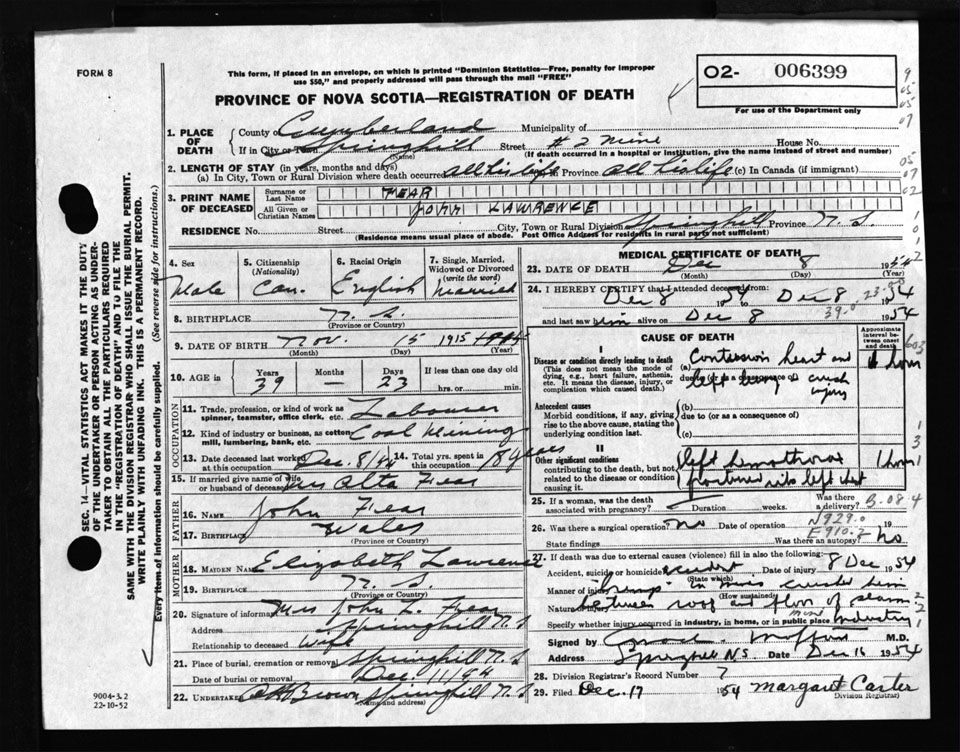 FORM 8
This form, if placed in an envelope, on which is printed "Dominion Statistics—Free, penalty for improper
use $50," and properly addressed will pass through the mail "FREE"
O2- 006399
For use of the Department only
PROVINCE OF NOVA SCOTIA—REGISTRATION OF DEATH
9
05
05
07
05
07
02
SEC. 14—VITAL STATISTICS ACT MAKES IT THE DUTY
OF THE UNDERTAKER OR PERSON ACTING AS UNDER-
TAKER TO OBTAIN ALL THE PARTICULARS REQUIRED
IN THE "REGISTRATION OF DEATH" AND TO FILE THE
SAME WITH THE DIVISION REGISTRAR WHO SHALL ISSUE THE BURIAL PERMIT.
WRITE PLAINLY WITH UNFADING INK. THIS IS A PERMANENT RECORD.
Every item of Information should be carefully supplied. (See reverse side for instructions.)
1. PLACE OF DEATH
County of Cumberland Municipality of
If in City or Town Springhill Street # 2 Mine House No.
(Name) (If death occurred in a hospital or institution, give the name instead of street and number)
2. LENGTH OF STAY (in years, months and days)
(a) In City, Town or Rural Division where death occurred all his life Province all his life (c) In Canada (if immigrant)
3. PRINT NAME OF DECEASED
Surname or Last Name FEAR
All Given or Christian Names JOHN LAWRENCE
RESIDENCE No. Street City, Town or Rural Division Springhill Province N. S.
(Residence means usual place of abode. Post Office Address for residents in rural parts not sufficient)
4. Sex Male
5. Citizenship (Nationality) Can.
6. Racial Origin English
7. Single, Married, Widowed or Divorced (write the word) Married
8. BIRTHPLACE N. S.
(Province or Country)
9. DATE OF BIRTH Nov. 15 1915
(Month) (Day) (Year)
10. AGE in Years 39 Months — Days 23 If less than one day old hrs. or min.
OCCUPATION
11. Trade, profession, or kind of work as spinner, teamster, office clerk, etc. Labourer
12. Kind of industry or business, as cotton mill, lumbering, bank, etc. Coal Mining
13. Date deceased last worked at this occupation Dec. 8/54 14. Total yrs. spent in this occupation 18 years
15. If married give name of wife or husband of deceased Mrs Alta Fear
FATHER
16. Name John Fear
17. Birthplace Wales
(Province or Country)
MOTHER
18. MAIDEN NAME Elizabeth Lawrence
19. BIRTHPLACE N. S.
(Province or Country)
20. Signature of informant Mrs John L. Fear
Address Springhill N. S
Relationship to deceased Wife
21. Place of burial, cremation or removal Springhill N. S
Date of burial or removal Dec. 11/54
22. Undertaker Brown Springhill N. S
(Name and address)
9004-3.2
22-10-52
MEDICAL CERTIFICATE OF DEATH
23. DATE OF DEATH Dec 8 1954
(Month) (Day) (Year)
24. I HEREBY CERTIFY that I attended deceased from:
Dec 8 1954 to Dec 8 1954
and last saw him alive on Dec 8 1954
39.0
CAUSE OF DEATH
Approximate interval between onset and death
I
Disease or condition directly leading to death
(This does not mean the mode of dying, e.g., heart failure, asthenia, etc. It means the disease, injury, or complication which caused death.)
(a) Contusion heart and
due to (or as a consequence of)
left lung crush
injury
1 hour
Antecedent causes
Morbid conditions, if any, giving rise to the above cause, stating the underlying condition last.
(b)
due to (or as a consequence of)
(c)
II
Other significant conditions
contributing to the death, but not related to the disease or condition causing it.
left hemothorax
fractured ribs left chest
1 hour
25. If a woman, was the death associated with pregnancy? Duration weeks. Was there a delivery?
B.08.4
26. Was there a surgical operation? no Date of operation 19
N929.0
F910.2
State findings Was there an autopsy? No
27. If death was due to external causes (violence) fill in also the following:
Accident, suicide or homicide accident Date of injury 8 Dec 1954
(State which)
Manner of injury bump in mine crushed him
(How sustained)
Nature of injury between roof and floor of seam
Specify whether injury occurred in industry, in home, or in public place mine Industry
Signed by M.D.
Address Springhill N.S. Date Dec 16 1954
28. Division Registrar's Record Number 7
29. Filed Dec. 17 1954 Margaret Carter
(Division Registrar)